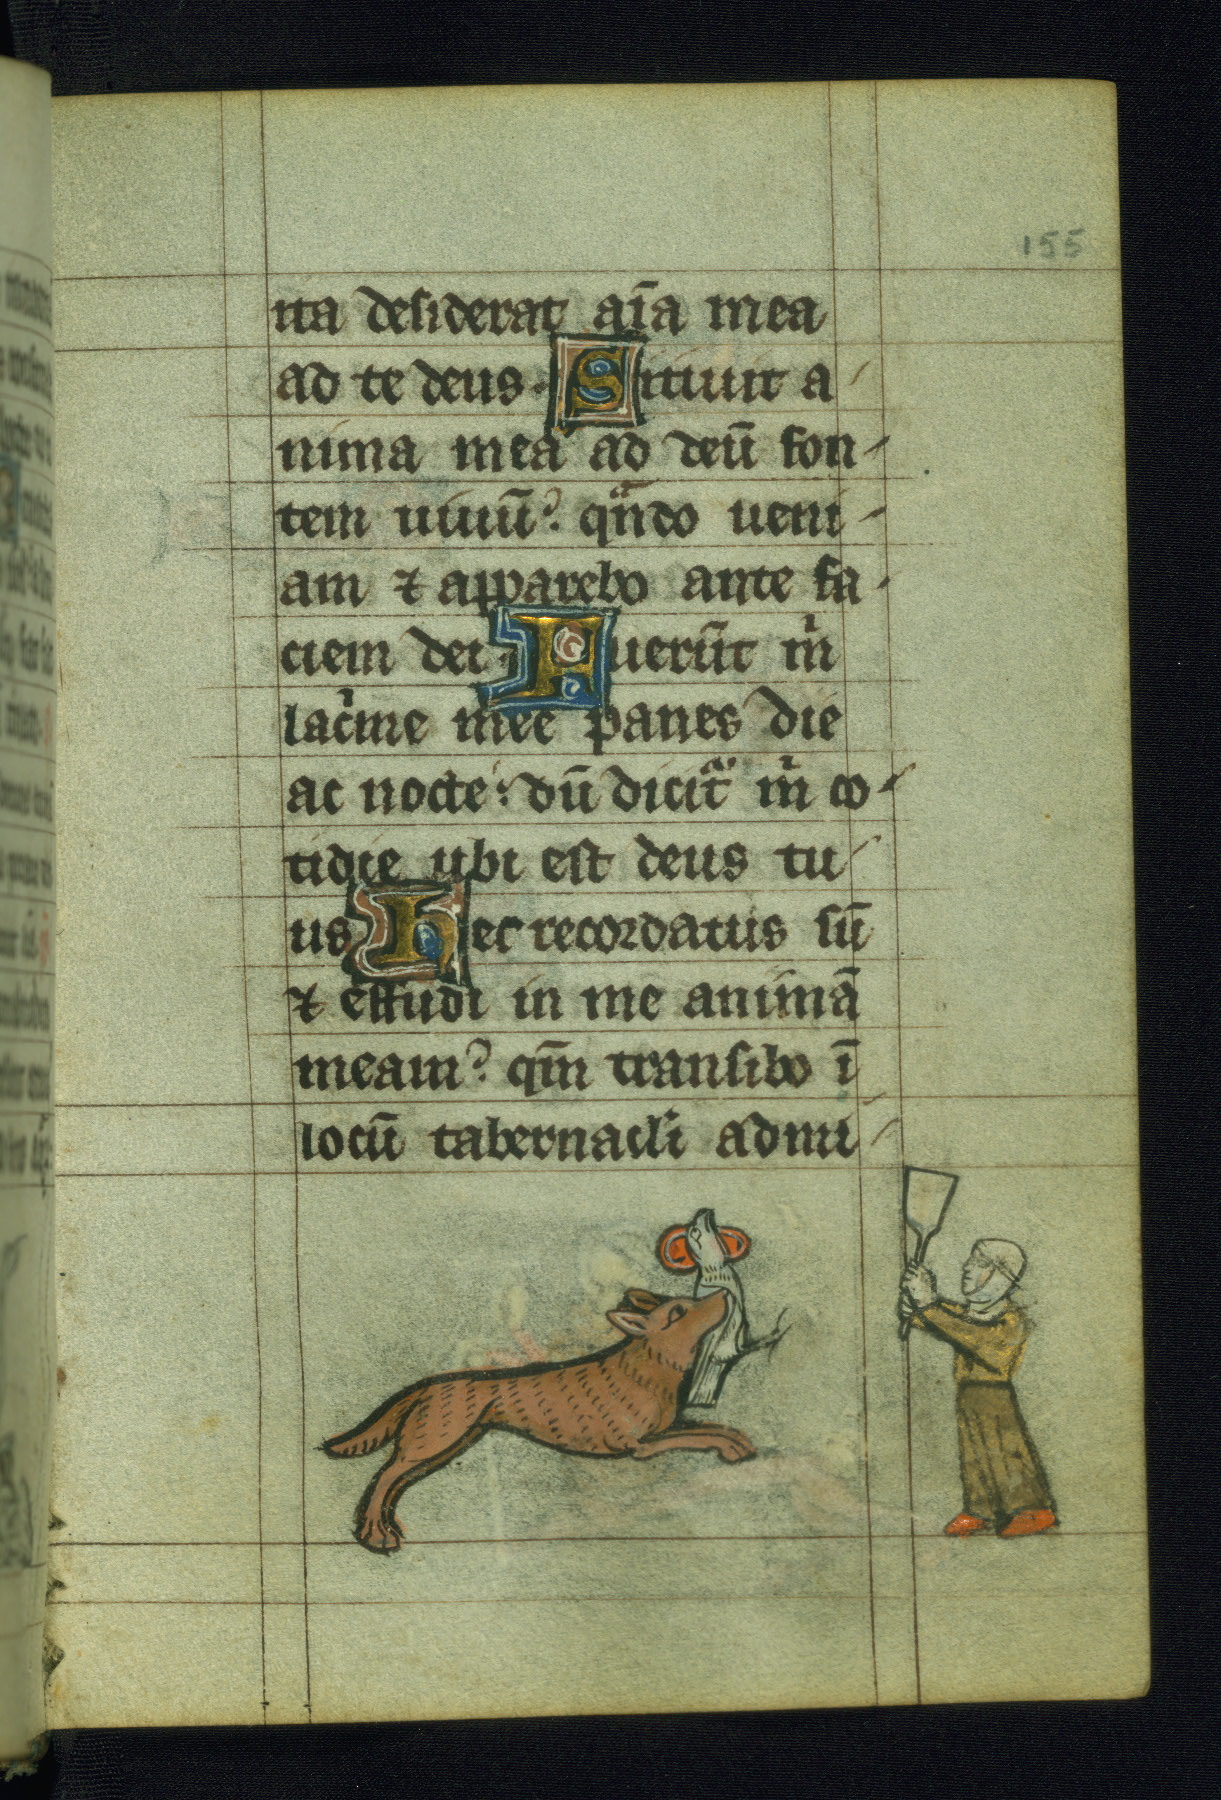 155
ita desiderat aīa mea
ad te deus. Sitiuit a
nima mea ad deū fon
tem uiuū? qn̄do ueni
am ⁊ apparebo ante fa
ciem dei. Fuerūt m̄
lac̄me mee panes die
ac nocte: dū dicit̄ m̄ co
tidie ubi est deus tu
us Hec recordatus sū
⁊ effudi in me animā
meam? qm̄ transibo ī
locū tabernacl̓i admi